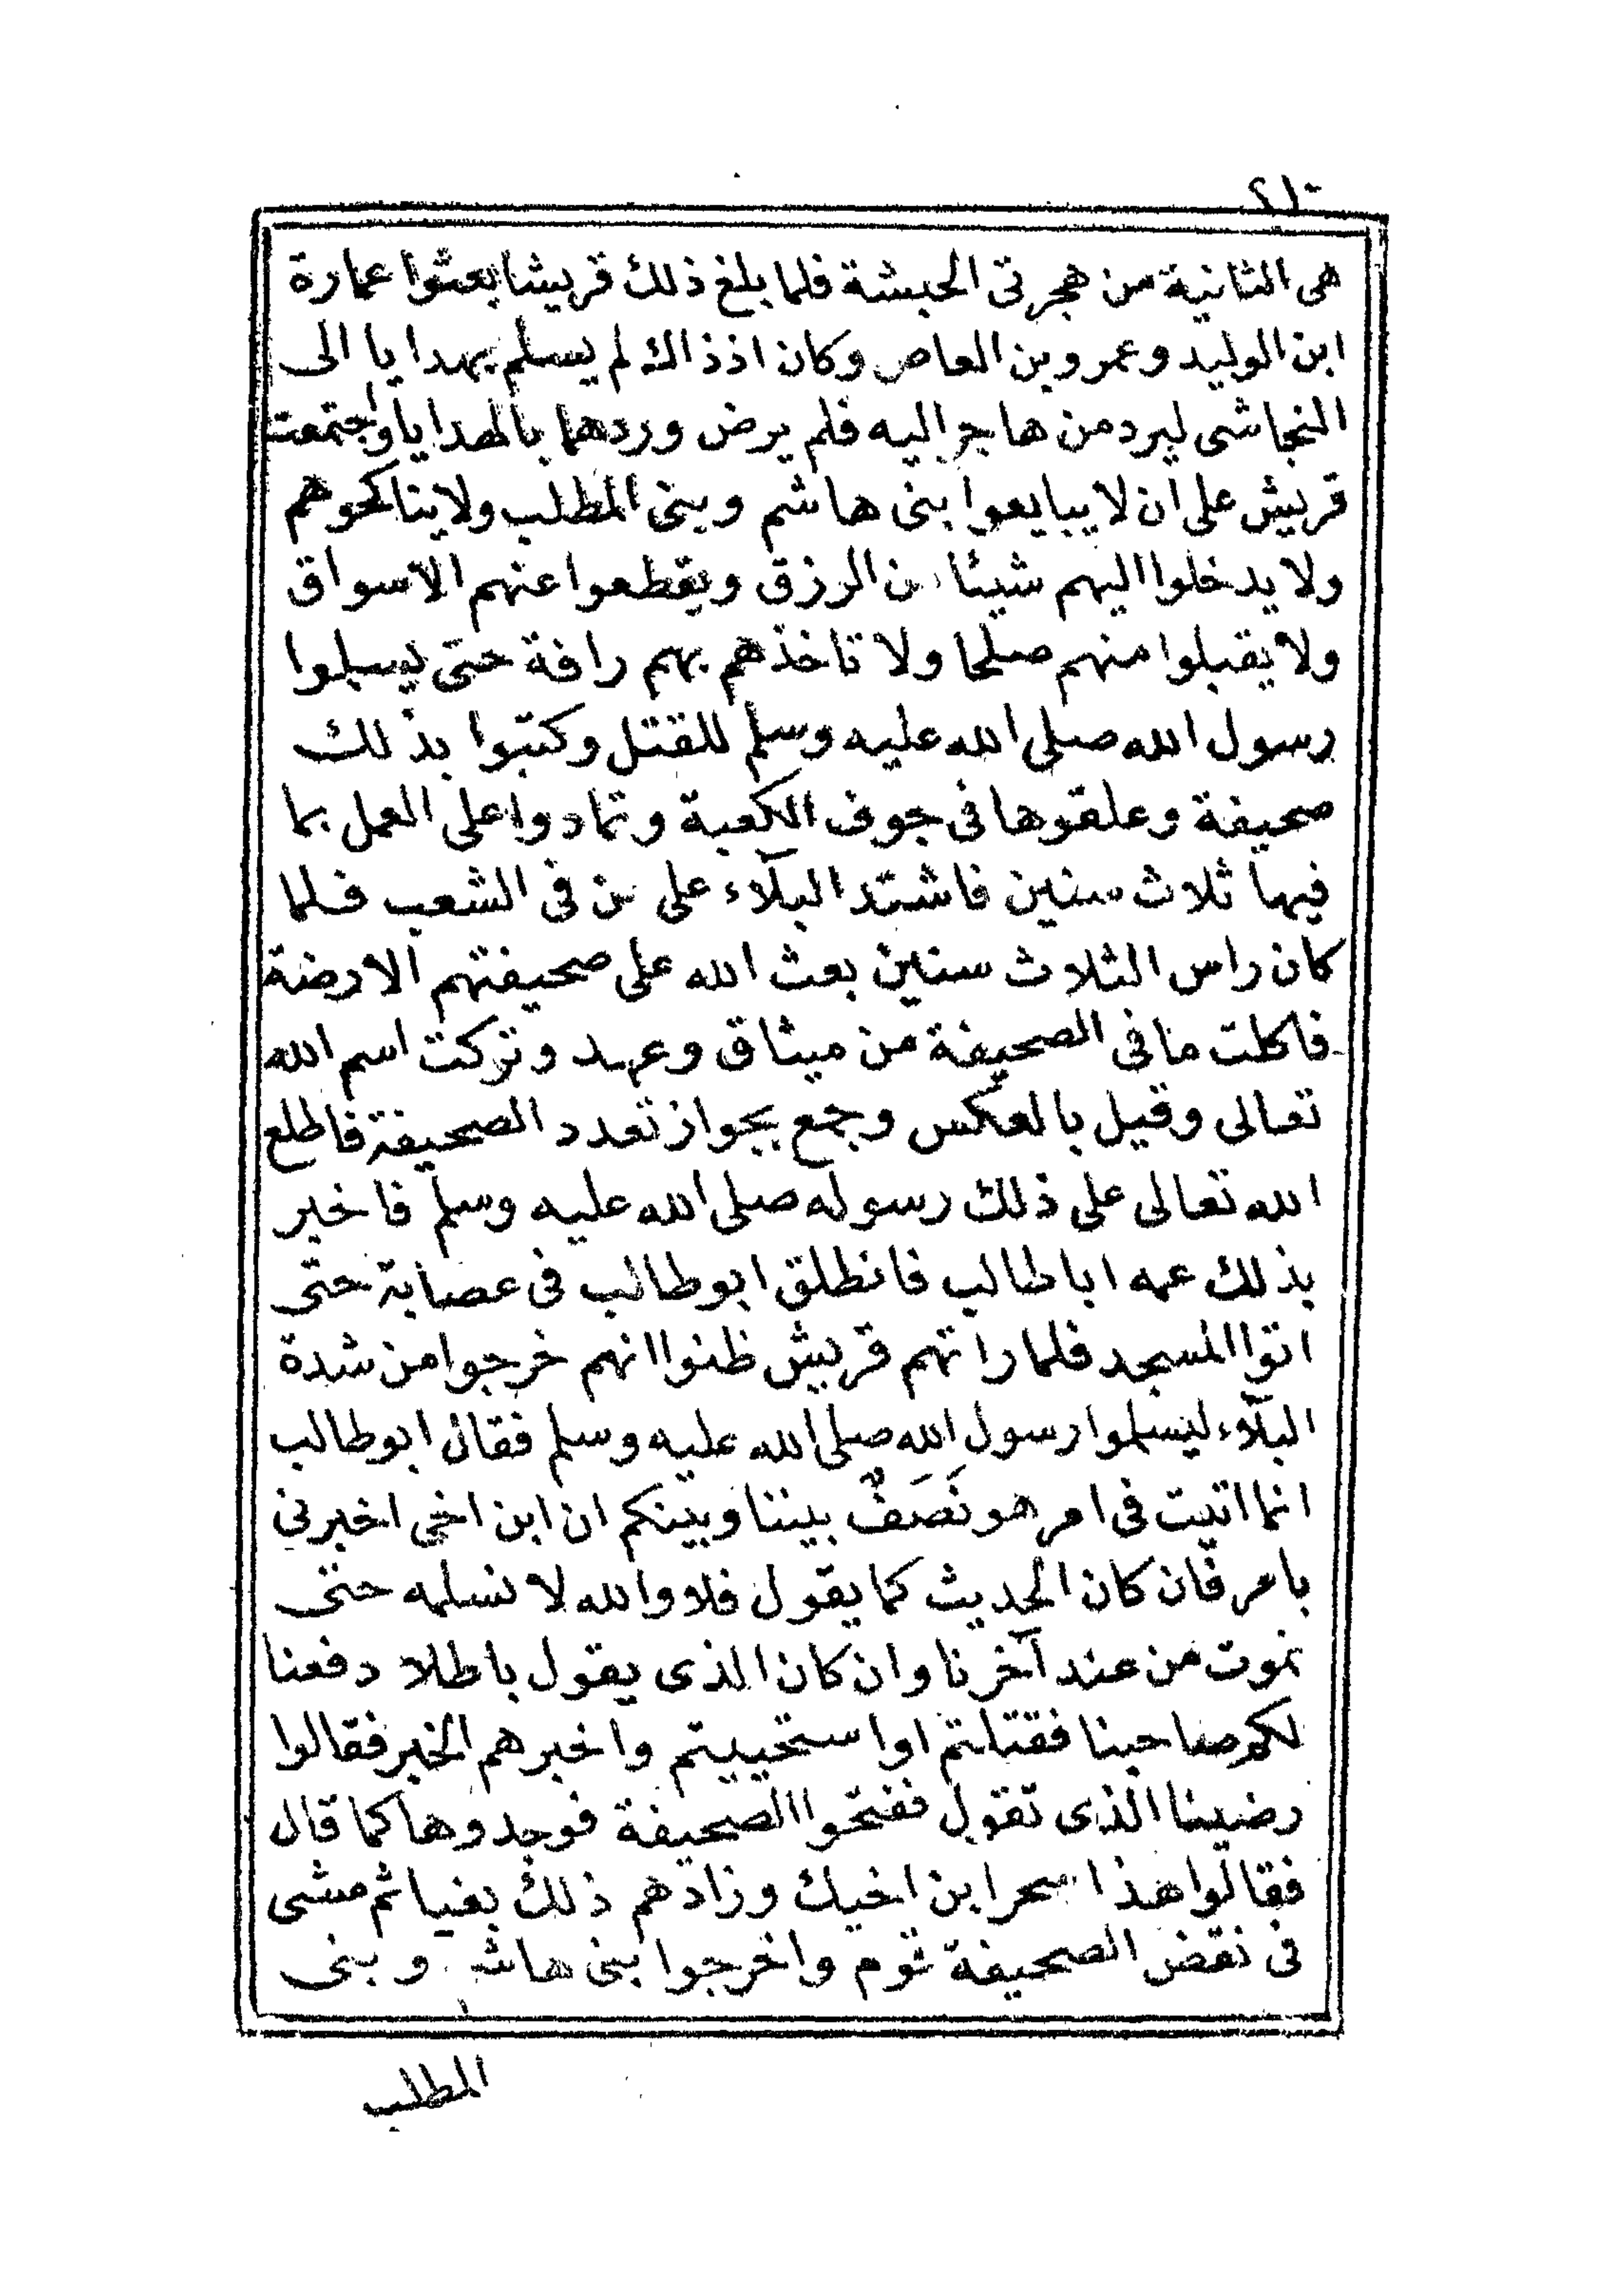 هى الثانية من هجرتى الحبشة فلما بلغ ذلك قريشا بعثوا عمارة
ابن الوليد وعمرو بن العاص وكان اذذاك لم يسلم بهدايا الى
النجاشى ليرد من هاجر اليه فلم يرض وردهما بالهدايا واجتمعت
قريش على ان لا يبايعوا بنى هاشم وبنى المطلب ولا يناكحوهم
ولا يدخلوا اليهم شيئا من الرزق ويقطعوا عنهم الاسواق
ولا يقبلوا منهم صلحا ولا تاخذهم بهم رافة حتى يسلموا
رسول الله صلى الله عليه وسلم للقتل وكتبوا بذلك
صحيفة وعلقوها فى جوف الكعبة وتمادوا على العمل بما
فيها ثلاث سنين فاشتد البلآء على من فى الشعب فلما
كان راس الثلاث سنين بعث الله على صحيفتهم الارضة
فاكلت ما فى الصحيفة من ميثاق وعهد وتركت اسم الله
تعالى وقيل بالعكس وجمع بجواز تعدد الصحيفة فاطلع
الله تعالى على ذلك رسوله صلى الله عليه وسلم فاخبر
بذلك عمه ابا طالب فانطلق ابو طالب فى عصابة حتى
اتوا المسجد فلما راتهم قريش ظنوا انهم خرجوا من شدة
البلآء ليسلموا رسول الله صلى الله عليه وسلم فقال ابو طالب
انما اتيت فى امر هو نَصَفٌ بيننا وبينكم ان ابن اخى اخبرنى
بامر فان كان الحديث كما يقول فلا والله لا نسلمه حتى
نموت من عند آخرنا وان كان الذى يقول باطلا دفعنا
لكم صاحبنا فقتلتم او استحييتم واخبرهم الخبر فقالوا
رضينا الذى تقول ففتحوا الصحيفة فوجدوها كما قال
فقالوا هذا سحر ابن اخيك وزادهم ذلك بغيا ثم مشى
فى نقض الصحيفة قوم واخرجوا بنى هاشم وبنى
المطلب